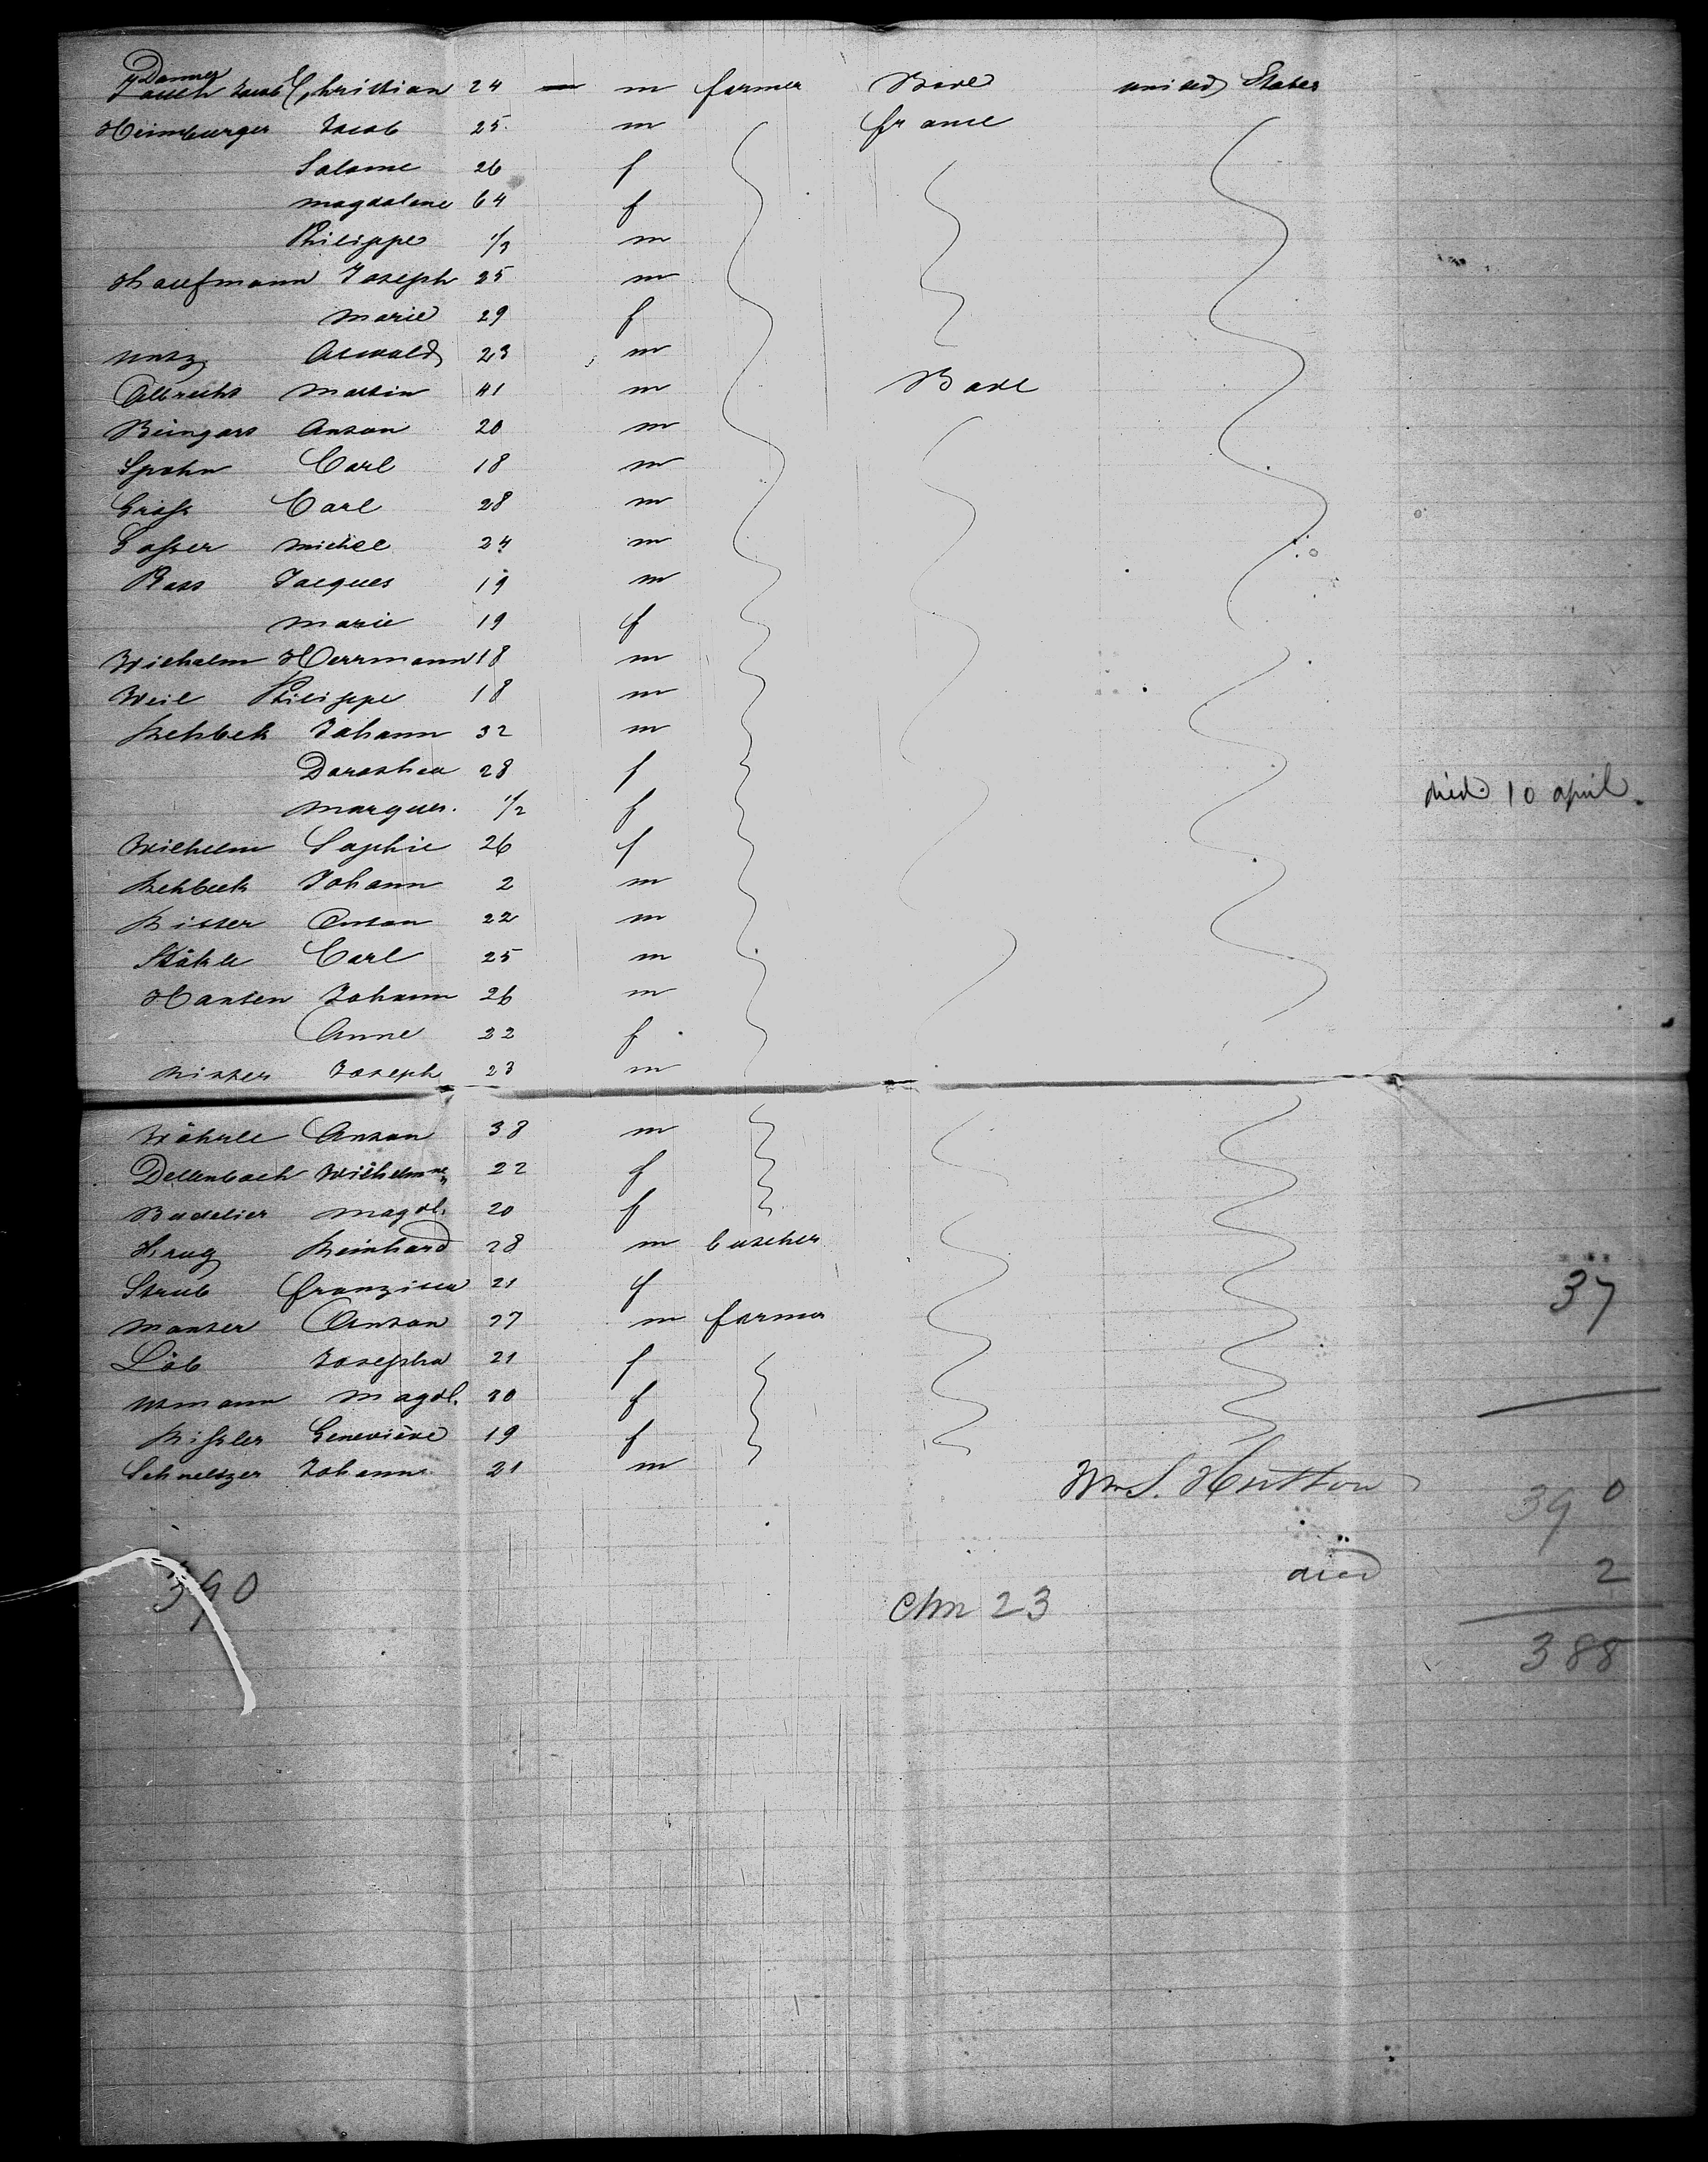 Danner
Jacob Christian 24 — m farmer Bade united States
Heimburger Jacob 25 m france
Salome 26 f
magdalene 64 f
Philippe 1/2 m
Kaufmann Joseph 25 m
marie 29 f
Oswald 23 m
Albrecht Martin 41 m Bade
Beingart Anton 20 m
Spohn Carl 18 m
Gross Carl 28 m
Gasser michel 24 m
Rass Jacques 19 m
marie 19 f
Wilhelm Herrmann 18 m
Weil Philippe 18 m
Rehbek Johann 32 m
Dorothea 28 f
marguer. 1/2 f died 10 april.
Wilhelm Sophie 26 f
Rehbeck Johann 2 m
Ritter Anton 22 m
Stähle Carl 25 m
Hansen Johann 26 m
Anne 22 f
Ritter Joseph 23 m
Wöhrle Anton 38 m
Dellenbach Wilhelmne 22 f
Badelier magdl. 20 f
Krug Reinhard 28 m butcher
Strub franzisca 21 f 37
Manser Anton 27 m farmer
Löb Josepha 21 f
Usmann magdl. 20 f
Rissler Geneviève 19 f
Schneltzer Johann 21 m
Wm S. Hutton
390
died 2
390 Chn 23
388